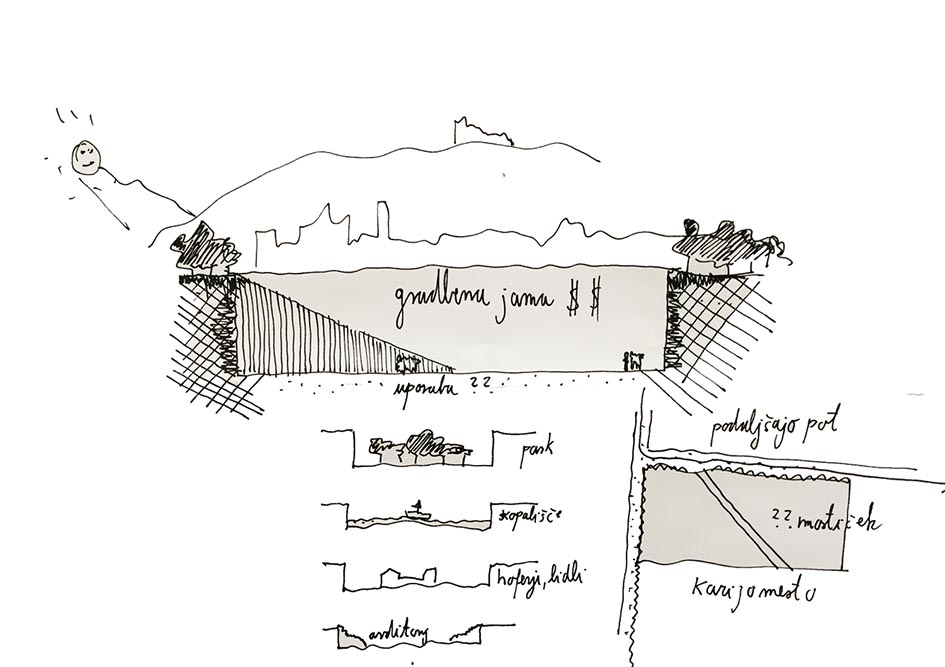 gradbena jama $ $
uporaba ??
park
kopališče
hoferji, lidli
avditorij
podaljšajo pot
?? mostiček
kazijo mesto